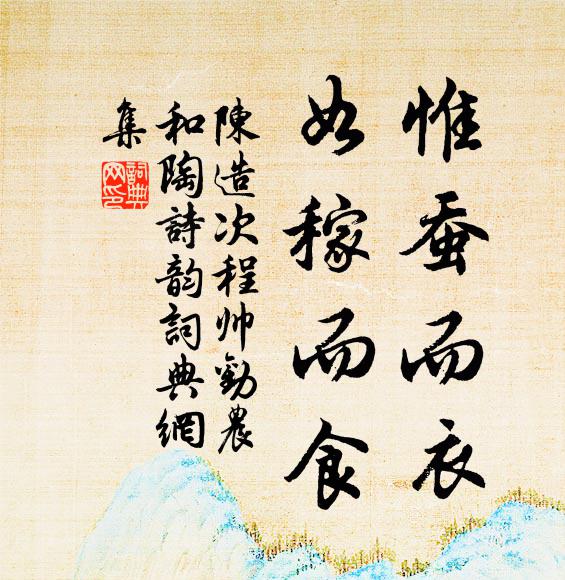 惟蚕而衣
如稼而食
陳造次程帅勸農
和陶詩韵詞典網
集
詞典网印